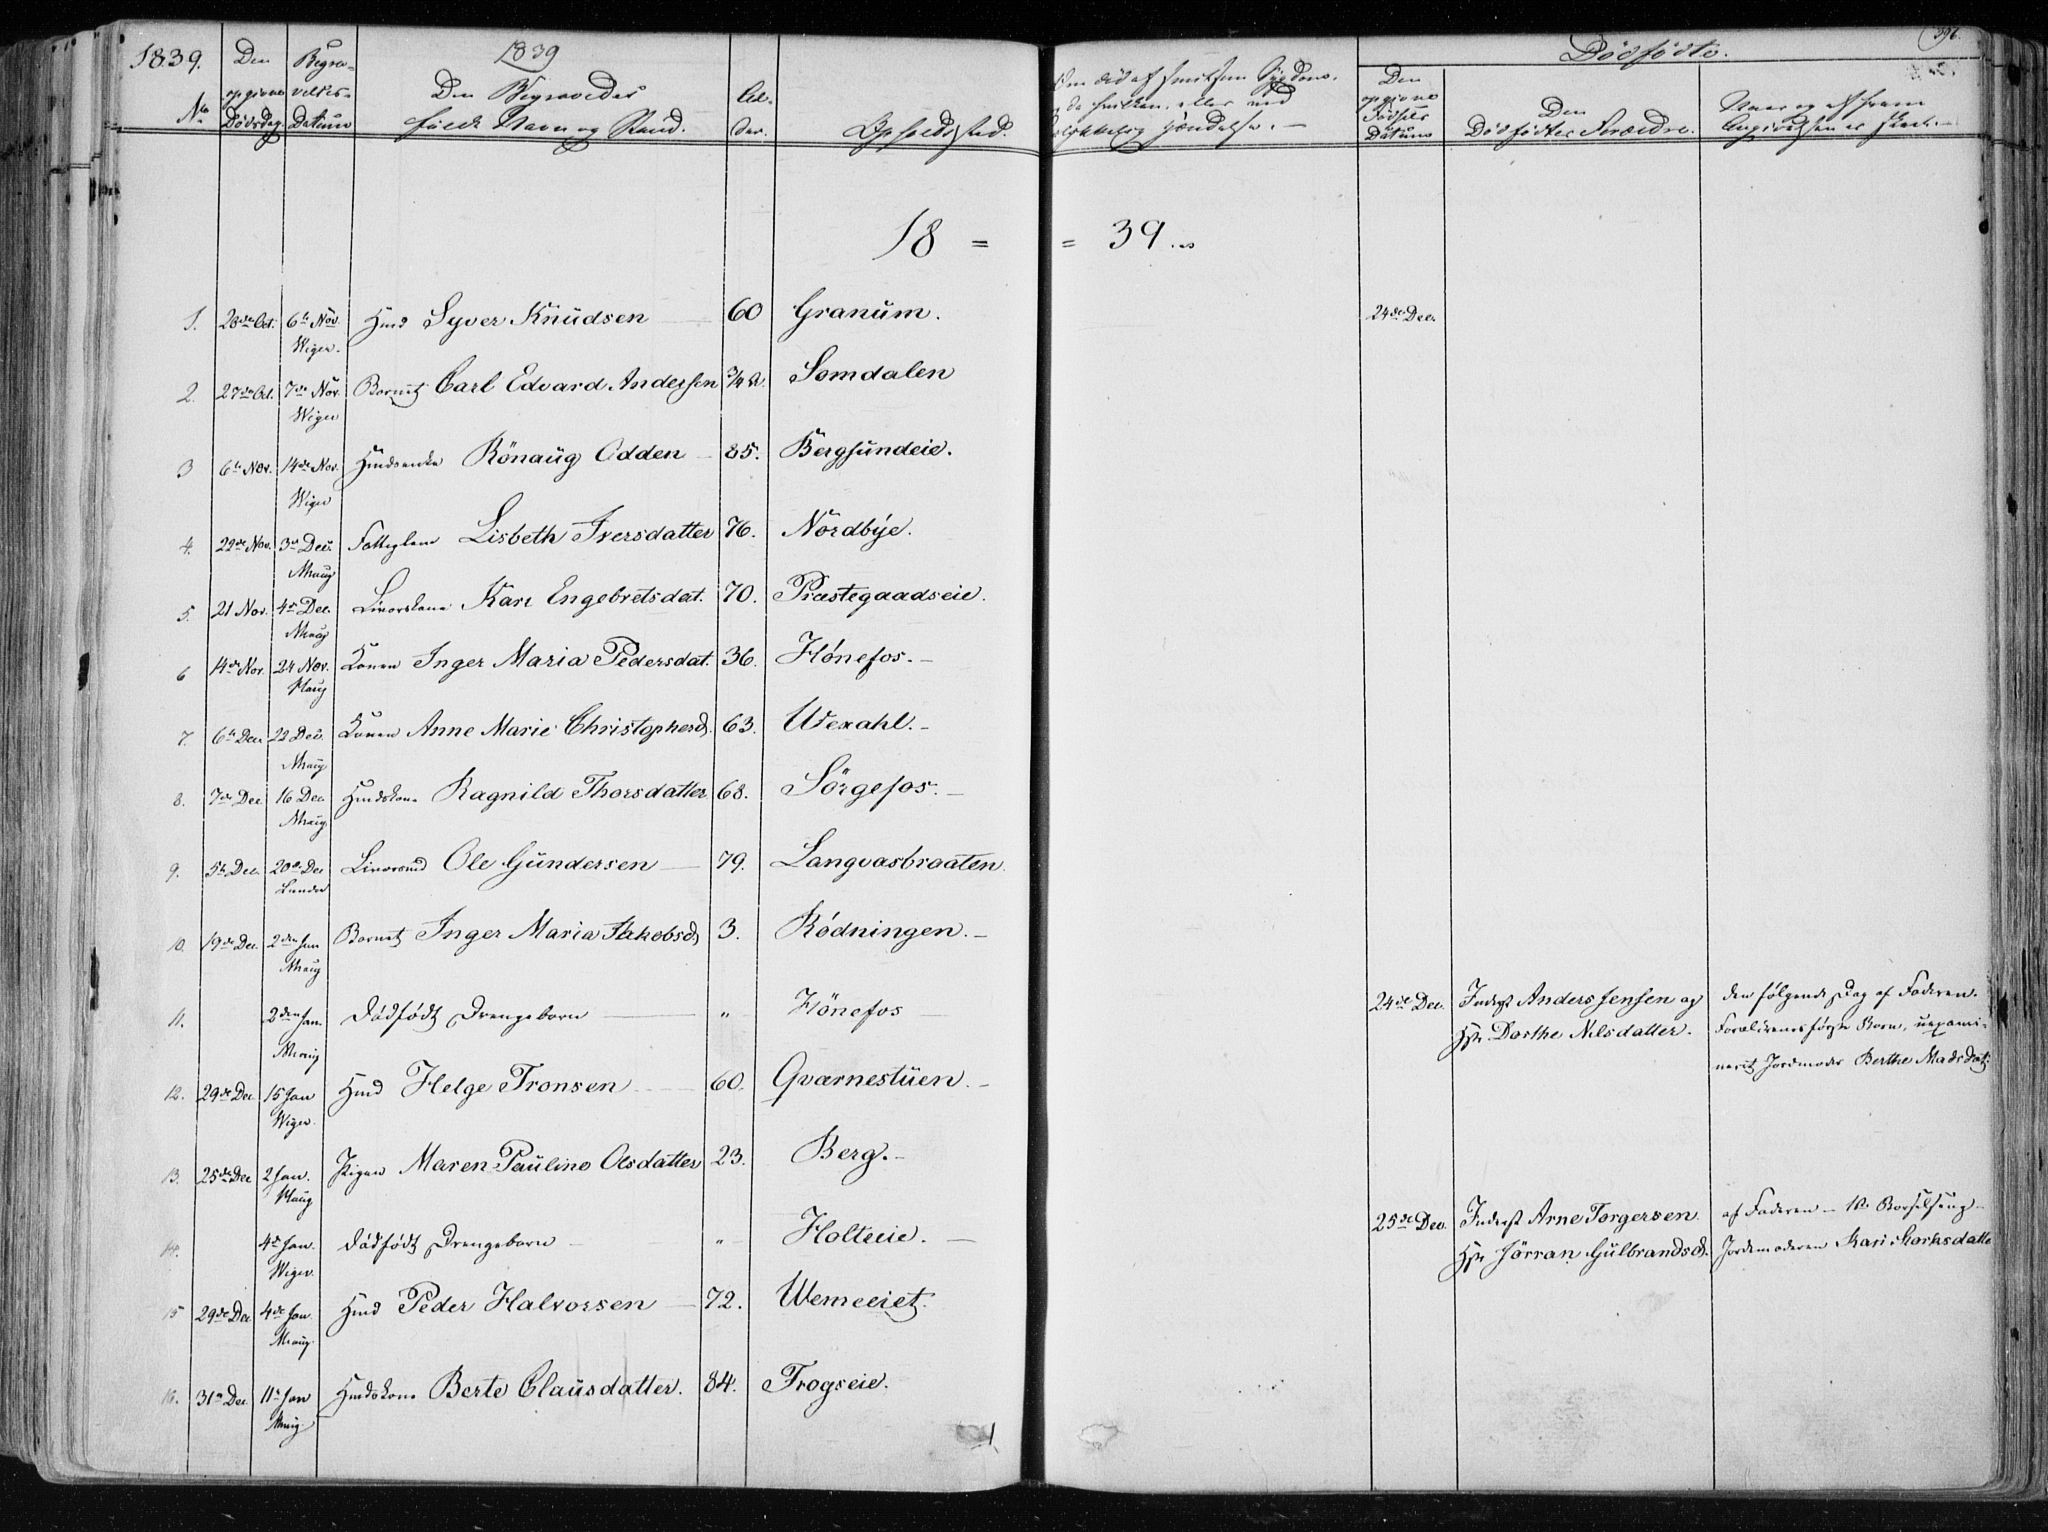 1839.
No
Den opgivne Dödsdag.
Begravelses-Datum
1839
Den Begravedes fulde Navn og Stand.
Al-der.
Opholdssted.
Dödfödte.
Den opgivne Födsels Datum
Den Dödfödtes Forældre.
396.
18 = = 39.
1. 28de Oct. 6te Nov. Wiger. Hmd Syver Knudsen 60 Granum. 24de Dec.
2. 27de Oct. 7de Nov. Wiger Barnet Carl Edvard Andersen 3/4 A. Somdalen
3 6te Nov. 14de Nov. Wiger Hmdsenke Rönaug Odden 85. Bergsundeie.
4. 22de Nov. 3de Dec. Nhaug Fattiglem Lisbeth Iversdatter 76. Nordbÿe.
5. 21 Nov. 4de Dec. Nhaug Kari Engebretsdat. 70. Præstegaadseie.
6 14de Nov. 24 Nov. Nhaug Konen Inger Maria Pedersdat. 36. Hónefos.
7. 6te Dec. 22 Dec. Nhaug Konen Anne Marie Christophersd. 63. Vexahl.
8. 7de Dec 16 Dec. Nhaug. Hmdskone Ragnild Thorsdatter 68. Sörgefos.
9. 5te Dec. 20de Dec Lunder Ole Gundersen 79. Langvasbraaten.
10. 19de Dec. 2den Jan Nhaug Barnet Inger Maria Jakobsd. 3. Ródningen.
11. 2den Jan. Nhaug Dödfödt Drengebarn " Hönefos
24de Dec. Inderst Anders Jensen og
Hstr. Dorthe Nilsdatter.
den fölgende Dag af Faderen.
Forældrenes förste Barn, uexami-
neret Jordmoder Berthe Madsdat:
12. 29de Dec. 15 Jan Wiger. Hmd Helge Tronsen 60. Qværnestuen.
13. 25de Dec 2 Jan. Nhaug Pigen Maren Pauline Olsdatter 23. Berg.
14. 4de Jan. Wiger. Dödfödt Drengebarn " Holteeie.
25de Dec. Inderst Arne Torgersen.
Hstr Jörran Gulbrandsd.
af Faderen
Jordemoderen Kari Larksdatte
15 29de Dec 4de Jan. Nhaug. Hmd Peder Halvorsen 72. Wemeeiet.
16. 31te Dec. 11te Jan Nhaug. Hmdskone Berte Clausdatter. 84. Frogseie.